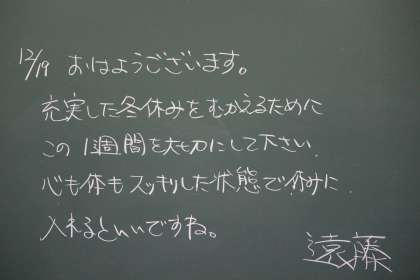 12/19 おはようございます。
充実した冬休みをむかえるために
この1週間を大切にして下さい.
心も体もスッキリした状態で休みに
入れるといいですね。
遠藤